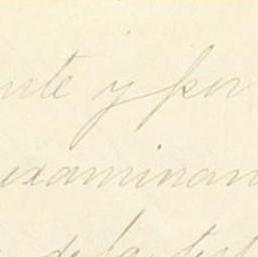 nte y por
examinan
de la